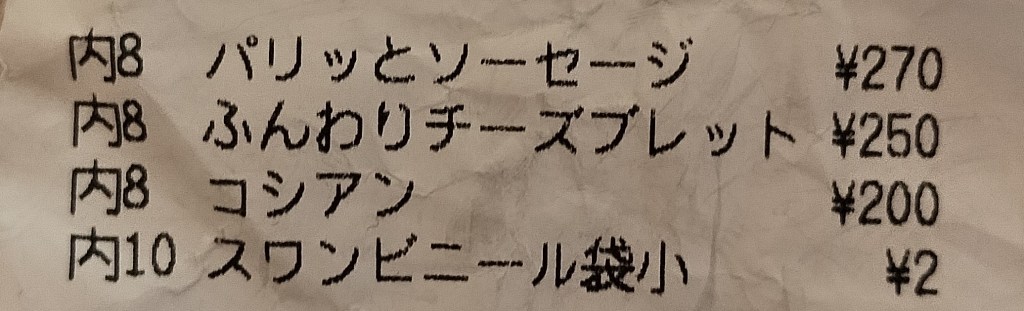 内8 パリッとソーセージ ¥270
内8 ふんわりチーズブレット ¥250
内8 コシアン ¥200
内10 スワンビニール袋小 ¥2